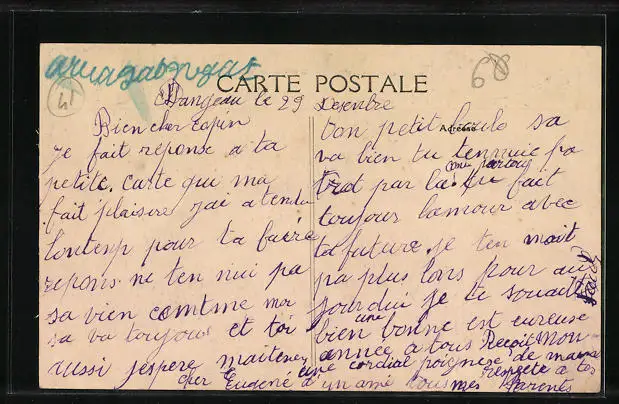 CARTE POSTALE
Adresse
Dangeau le 29 Desenbre
Bien cher copin
je fait reponse a ta
petite carte qui ma
fait plaisire j'ai atendu
lontenp pour ta faire
repons ne ten nui pa
sa vien comtme moi
sa va toujour et toi
aussi jespere maitenen
cher Eugené
ton petit sa
va bien tu tennuie pa
trot par la tu fait
toujours lamour avec
ta future je ten mait
pa plus lons pour au
jourdui je te souaite
une
bien bonne est eureuse
année a tous Reçoit mon
une cordial poignese de
d'un ami tous mes respete a tes
parents
68